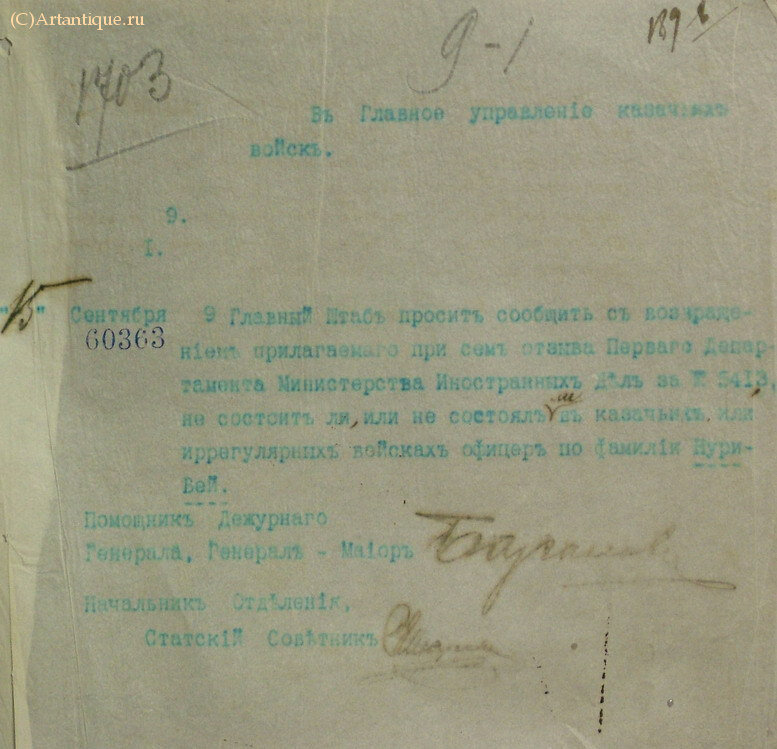 (C)Artantique.ru
9-1
1703
Въ Главное управленіе казачьихъ
войскъ.
9.
I.
"15" Сентября 9 Главный Штабъ проситъ сообщить съ возвраще-
60363
ніемъ прилагаемаго при семъ отзыва Перваго Депар-
тамента Министерства Иностранныхъ Дѣлъ за № 5413,
не состоитъ ли, или не состоялъ ли въ казачьихъ или
иррегулярныхъ войскахъ офицеръ по фамиліи Нури-
Бей.
Помощникъ Дежурнаго
Генерала, Генералъ - Маіоръ
Начальникъ Отдѣленія,
Статскій Совѣтникъ